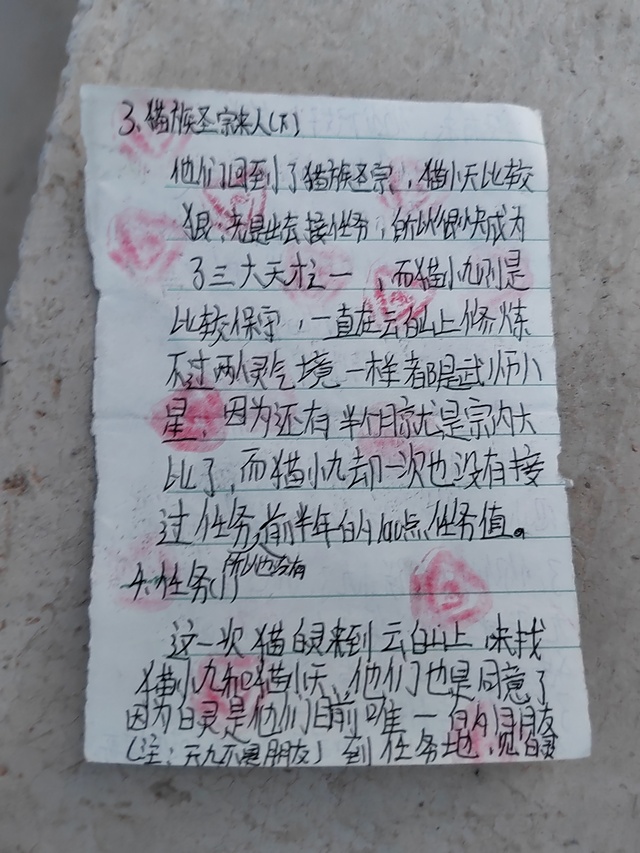 3、猫族圣宗来人(下)
他们回到了猫族圣宗，猫小天比较
狠，先是出去接任务，所以很快成为
了三大天柱一，而猫小九则是
比较保守，一直在云白山上修炼
不过两灵气境一样都是武师八
星，因为还有半个月就是宗内大
比了，而猫小九却一次也没有接
过任务，前半年的100点任务值。
所以也没有
4、任务(
这一次猫白灵来到云白山上，来找
猫小九和猫小天，他们也是同意了
因为白灵是他们目前唯一一个的朋友
(注：天九不是朋友)到任务地，见白灵